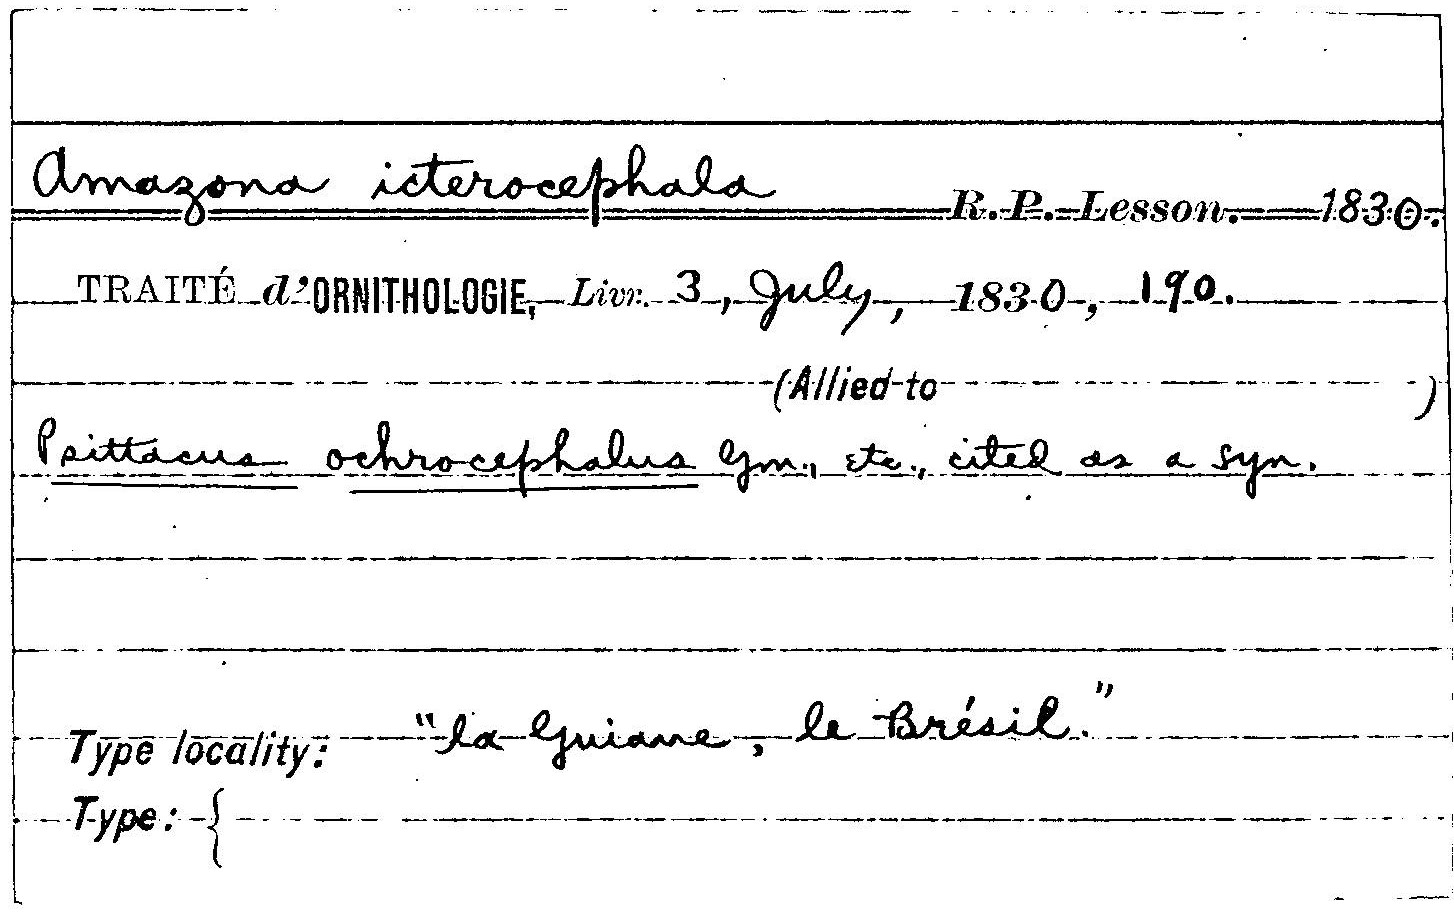 Amazona icterocephala R. P. Lesson. 1830.
TRAITÉ d'ORNITHOLOGIE, Livr. 3, July, 1830, 190.
(Allied to )
Psittacus ochrocephalus Gm., etc., cited as a syn.
Type locality: "la Guiane, le Brésil."
Type: {